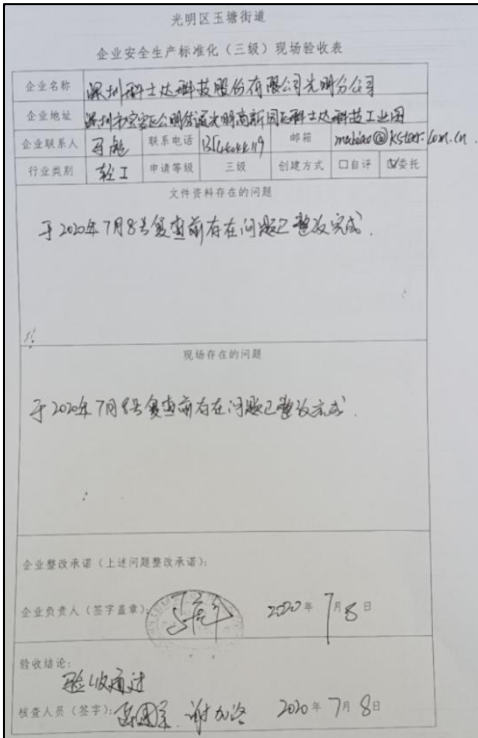 光明区玉塘街道
企业安全生产标准化（三级）现场验收表
企业名称 深圳科士达科技股份有限公司光明分公司
企业地址 深圳市宝安区公明街道光明高新园区科士达科技工业园
企业联系人 马彪 联系电话 邮箱 mabiao@kstar.com.cn
行业类别 轻工 申请等级 三级 创建方式 □自评 ☑委托
文件资料存在的问题
于2020年7月8号复查前存在问题已整改完成.
现场存在的问题
于2020年7月8号复查前存在问题已整改完成.
企业整改承诺（上述问题整改承诺）：
企业负责人（签字盖章）： 2020年7月8日
验收结论：
验收通过
核查人员（签字）： 2020年7月8日